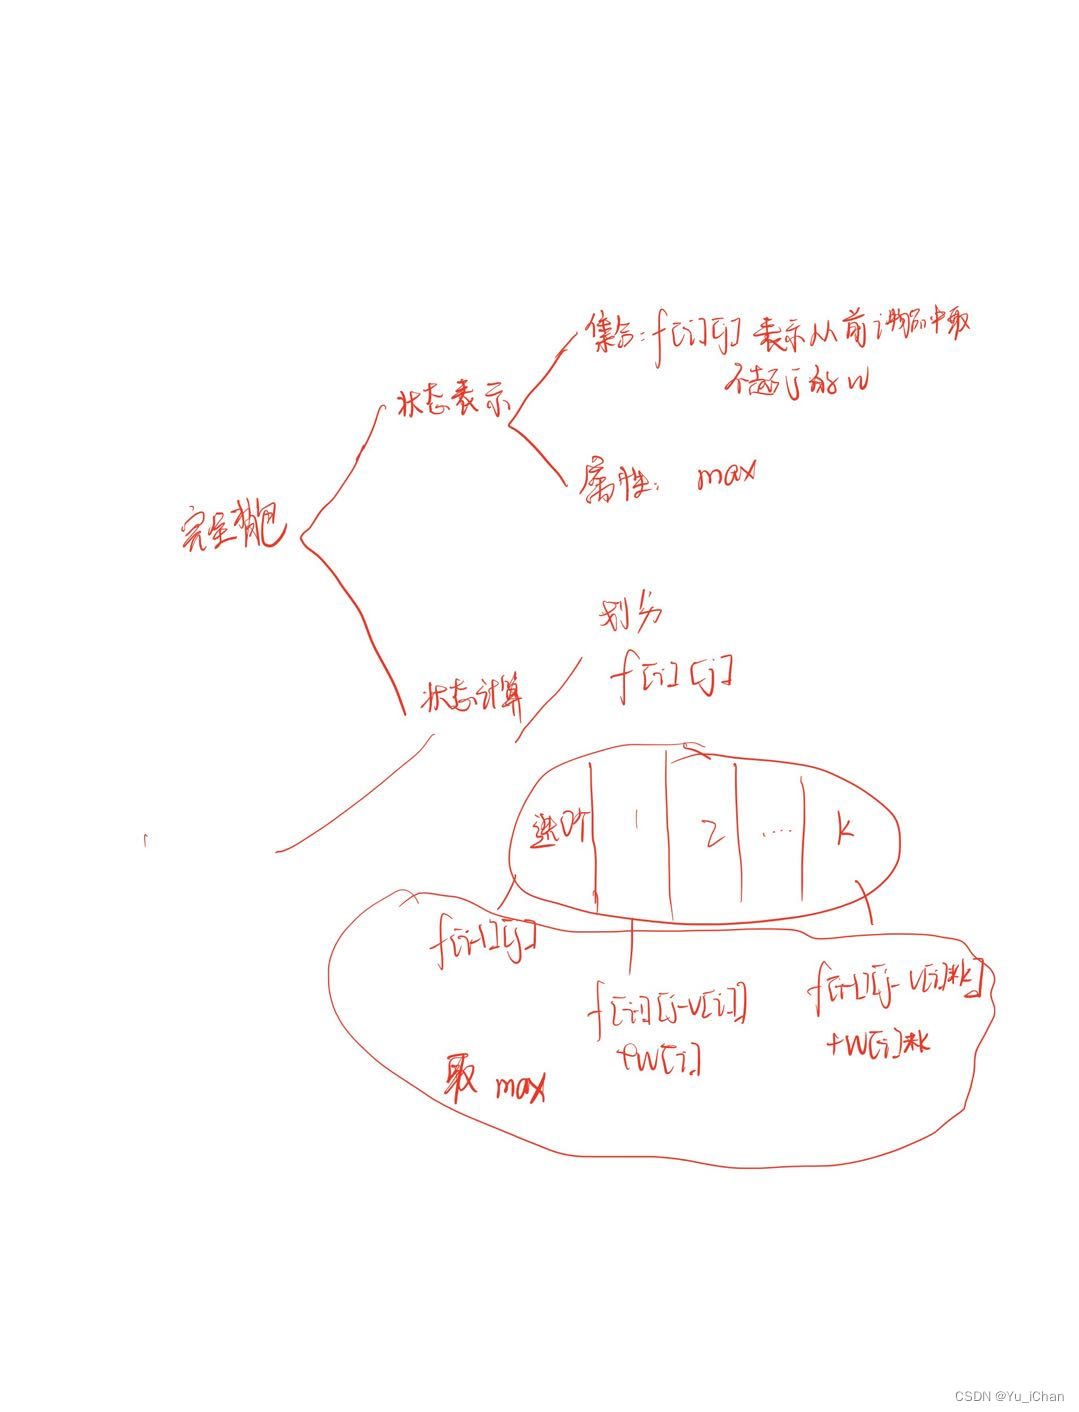 集合:f[i][j] 表示从前i物品中取
不超j的w
状态表示
属性: max
完全背包
划分
f[i][j]
状态计算
选0个 1 2 .... k
f[i-1][j]
f[i-1][j-v[i]]
+w[i]
f[i-1][j-v[i]*k]
+w[i]*k
取 max
CSDN @Yu_iChan